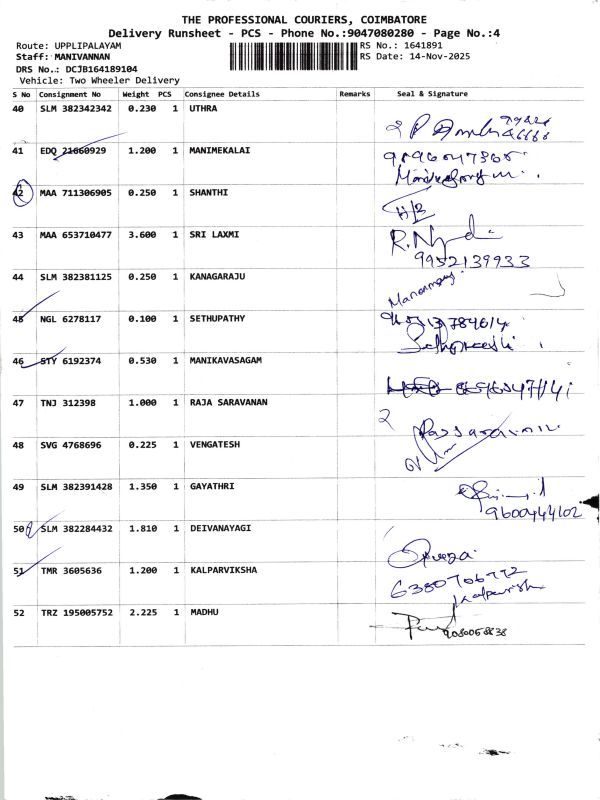 THE PROFESSIONAL COURIERS, COIMBATORE
Delivery Runsheet - PCS - Phone No.:9047080280 - Page No.:4
Route: UPPLIPALAYAM RS No.: 1641891
Staff: MANIVANNAN RS Date: 14-Nov-2025
DRS No.: DCJB164189104
Vehicle: Two Wheeler Delivery
S No Consignment No Weight PCS Consignee Details Remarks Seal & Signature
40 SLM 382342342 0.230 1 UTHRA
41 EDQ 21660929 1.200 1 MANIMEKALAI
42 MAA 711306905 0.250 1 SHANTHI
H/B
43 MAA 653710477 3.600 1 SRI LAXMI
9952139933
44 SLM 382381125 0.250 1 KANAGARAJU
45 NGL 6278117 0.100 1 SETHUPATHY
46 STY 6192374 0.530 1 MANIKAVASAGAM
47 TNJ 312398 1.000 1 RAJA SARAVANAN
48 SVG 4768696 0.225 1 VENGATESH
49 SLM 382391428 1.350 1 GAYATHRI
9600444102
50 SLM 382284432 1.810 1 DEIVANAYAGI
51 TMR 3605636 1.200 1 KALPARVIKSHA
6380706772
52 TRZ 195005752 2.225 1 MADHU
9080058838